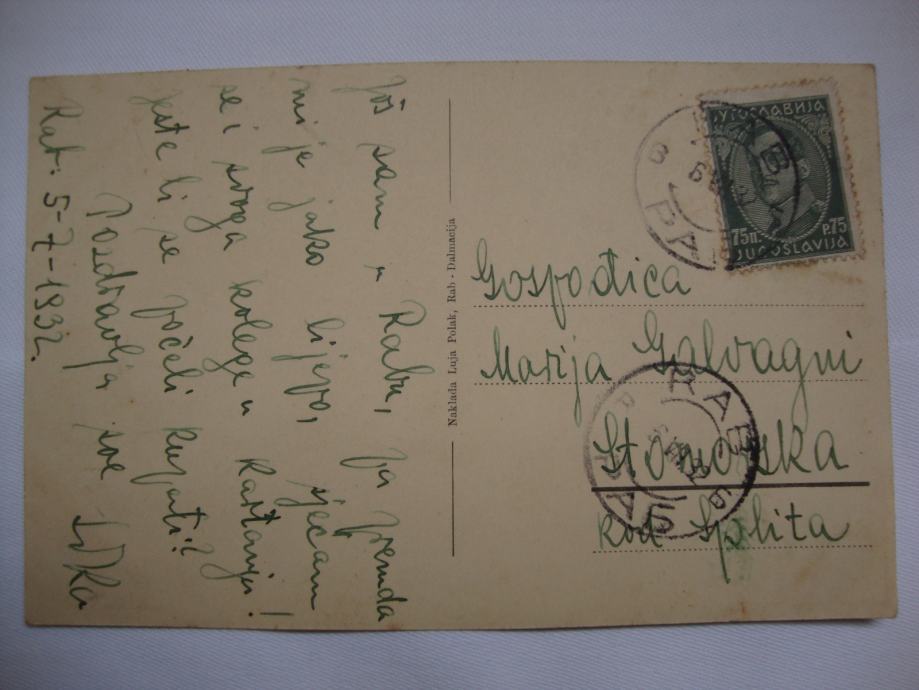 Još sam u Rabu, pa premda
mi je jako lijepo, sjećam
se i svoga kolege u Kaštanju!
Jeste li se počeli kupati?
Pozdravlja sve
Rab: 5-7-1932.
Naklada Luja Polak, Rab - Dalmacija
ЈУГОСЛАВИЈА
75П. P.75
JUGOSLAVIJA
RAB
РАБ
Gospođica
Marija Galvagni
Stomorska
kod Splita
RAB
РАБ